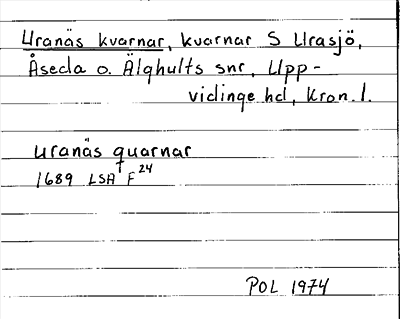 Uranäs kvarnar, kvarnar S Urasjö,
Åseda o. Älghults snr, Upp-
vidinge hd, Kron. l.
Uranäs quarnar
1689 LSA F 24
POL 1974